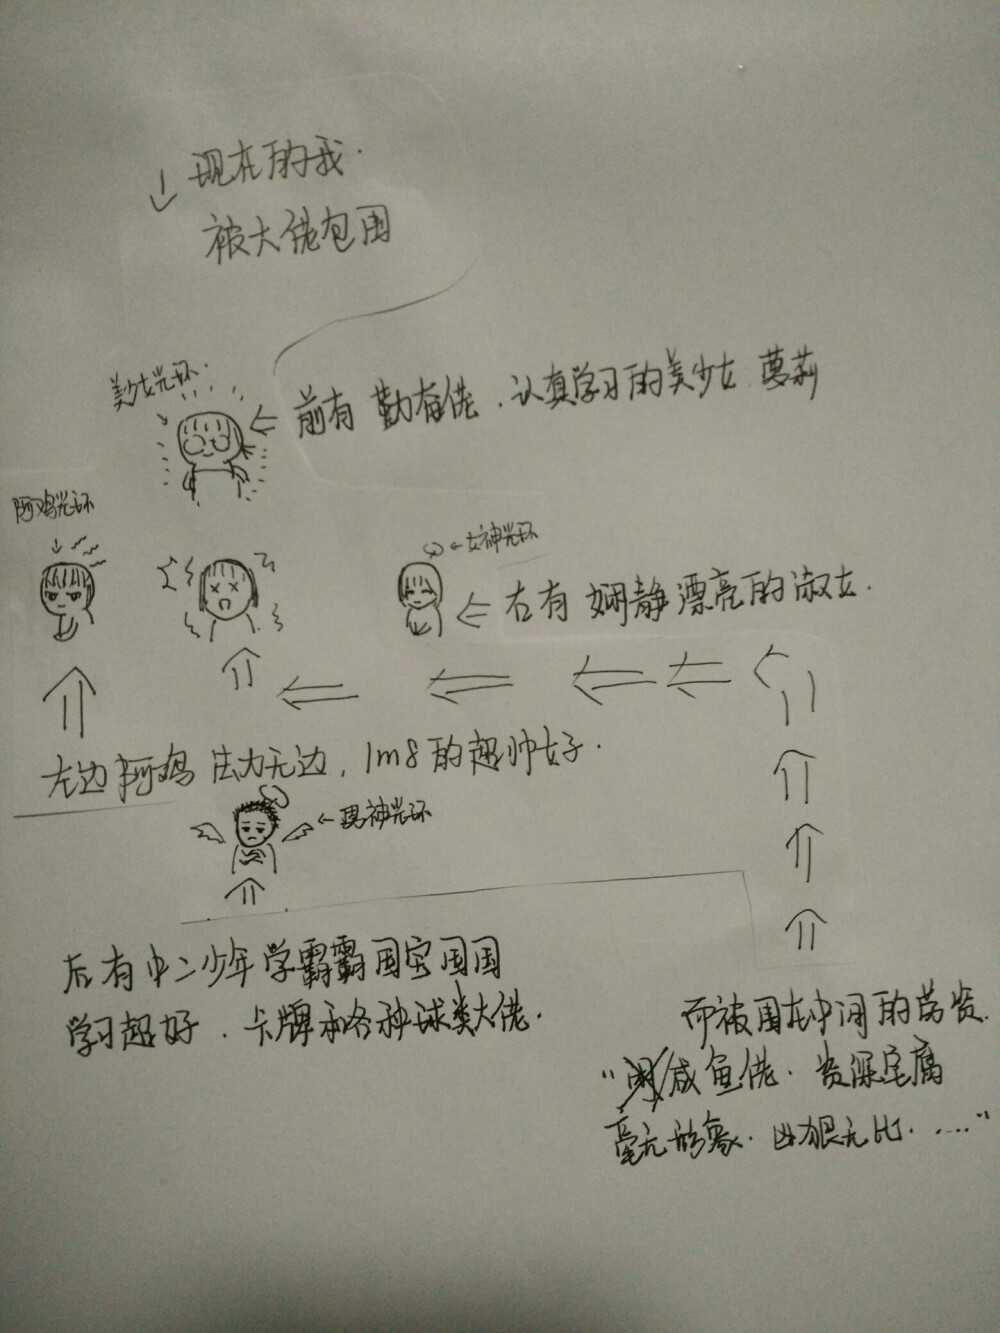 ↓ 现在的我.
被大佬包围
美少女光环.
前有 勤奋佬.认真学习的美少女 萝莉
阿鸡光环
←女神光环
右有 娴静漂亮的淑女.
左边阿鸡 法力无边, 1m8的超帅女子.
←男神光环
后有中二少年学霸霸国宝国国
学习超好.卡牌和各种球类大佬.
而被围在中间的
咸鱼佬.资深宅腐
毫无形象.凶狠无比. ....."